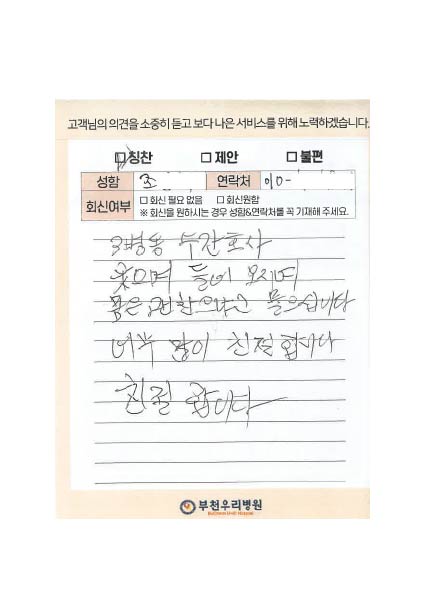 고객님의 의견을 소중히 듣고 보다 나은 서비스를 위해 노력하겠습니다.
칭찬 제안 불편
성함 조 연락처 010-
회신여부 회신 필요 없음 회신원함
※ 회신을 원하시는 경우 성함&연락처를 꼭 기재해 주세요.
3병동 수간호사
웃으며 들어 오시며
몸은 편한으냐고 물으십니다
너무 많이 친절합니다
친절 합니다
부천우리병원